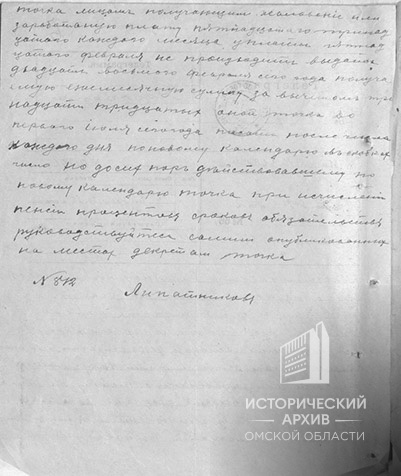 точка лицам получающим жалованье или
заработную плату пятнадцатого тринад
цатого каждого месяца уплати пятнад
цатого февраля не производить выдать
двадцать восьмого февраля сего года получа
емую ежемесячную сумму за вычетом три
надцати тридцатых оной точка до
первого июля сего года писать после числа
каждого дня по новому календарю в скобках
число по до сих пор действовавшему по
новому календарю точка при исчислении
пенсии процентов сроков обязательств
руководствуйтесь самим опубликованным
на местах декретам точка
N 812
ИСТОРИЧЕСКИЙ
АРХИВ
ОМСКОЙ ОБЛАСТИ